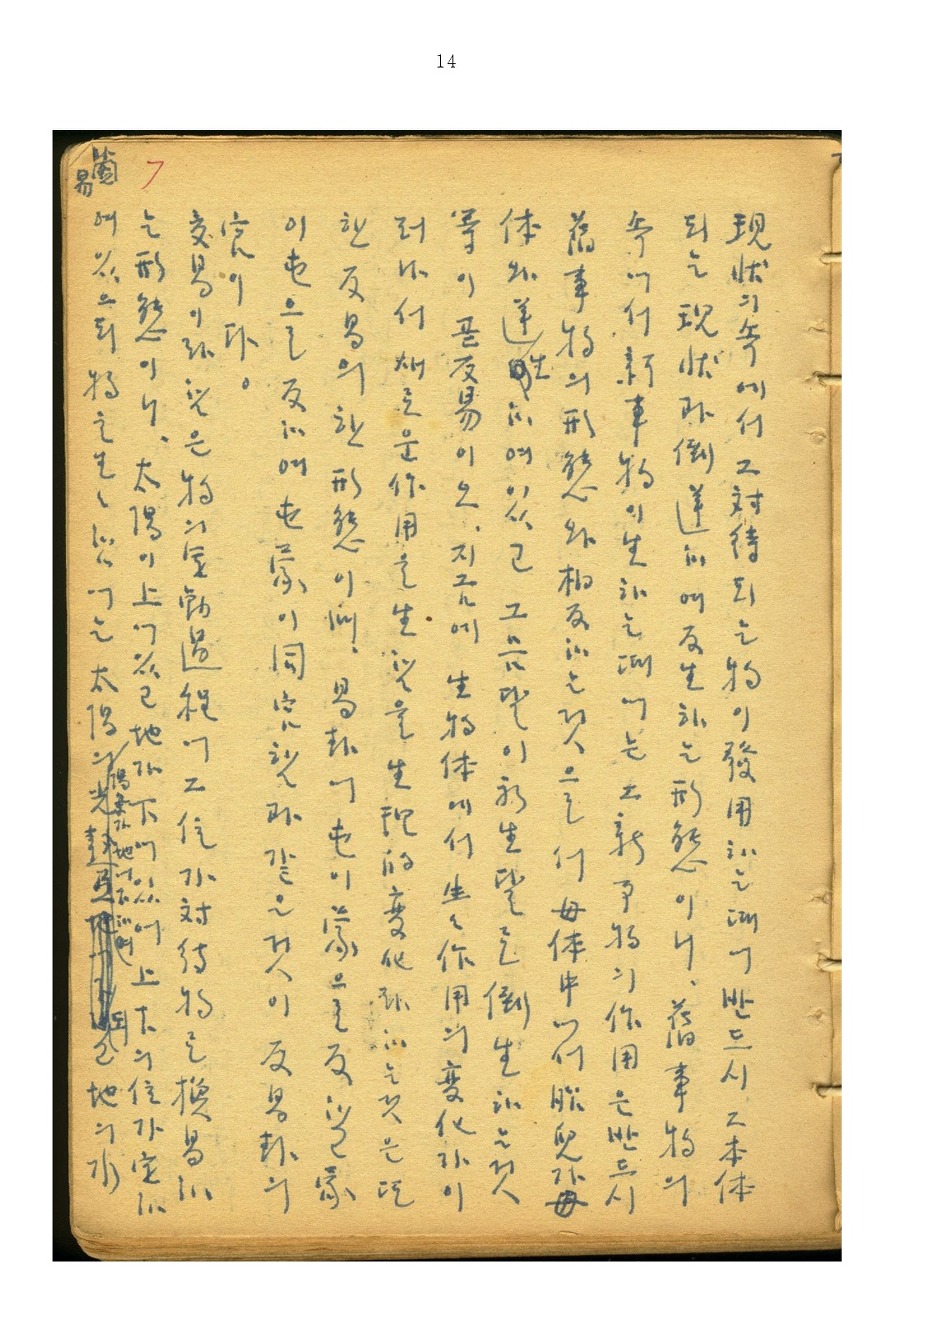 14
7
現狀의 속에서 그 對待되는 物이 發用하는 때에 반드시 그 本体
되는 現狀과 倒逆하여 反生하는 形態이니、舊事物의
속에서 新事物이 生하는 때에는 그 新事物의 作用은 반드시
舊事物의 形態와 相反하는 것으로서 母体中에서 胎兒가 母
体와 逆 하여 있고 그 이 를 倒生하는 것
等이 곧 反易이오、지금에 生物体에서 生生作用의 變化가 이
러나서 새로운 作用을 生함을 生理的 變化라 하는 것은 또
한 反易의 한 形態이며、易卦에 屯이 蒙으로 反함 蒙
이 屯으로 反하여 屯蒙이 同宮함과 같은 것이 反易卦의
宮이다。
交易이라 함은 物의 運動過程에 그 位가 對待物로 換易하
는 形態이니、太陽이 上에 있고 地가 下에 있어 上下의 位가 定하
여 있으되 物을 生 함에는 太陽의 光熱 地의 水
易